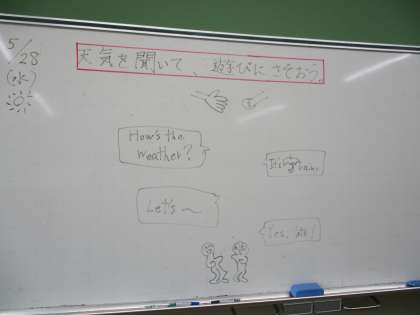 5/28
(水)
天気を聞いて、遊びにさそおう。
How's the
weather?
It's
Let's ～
Yes,